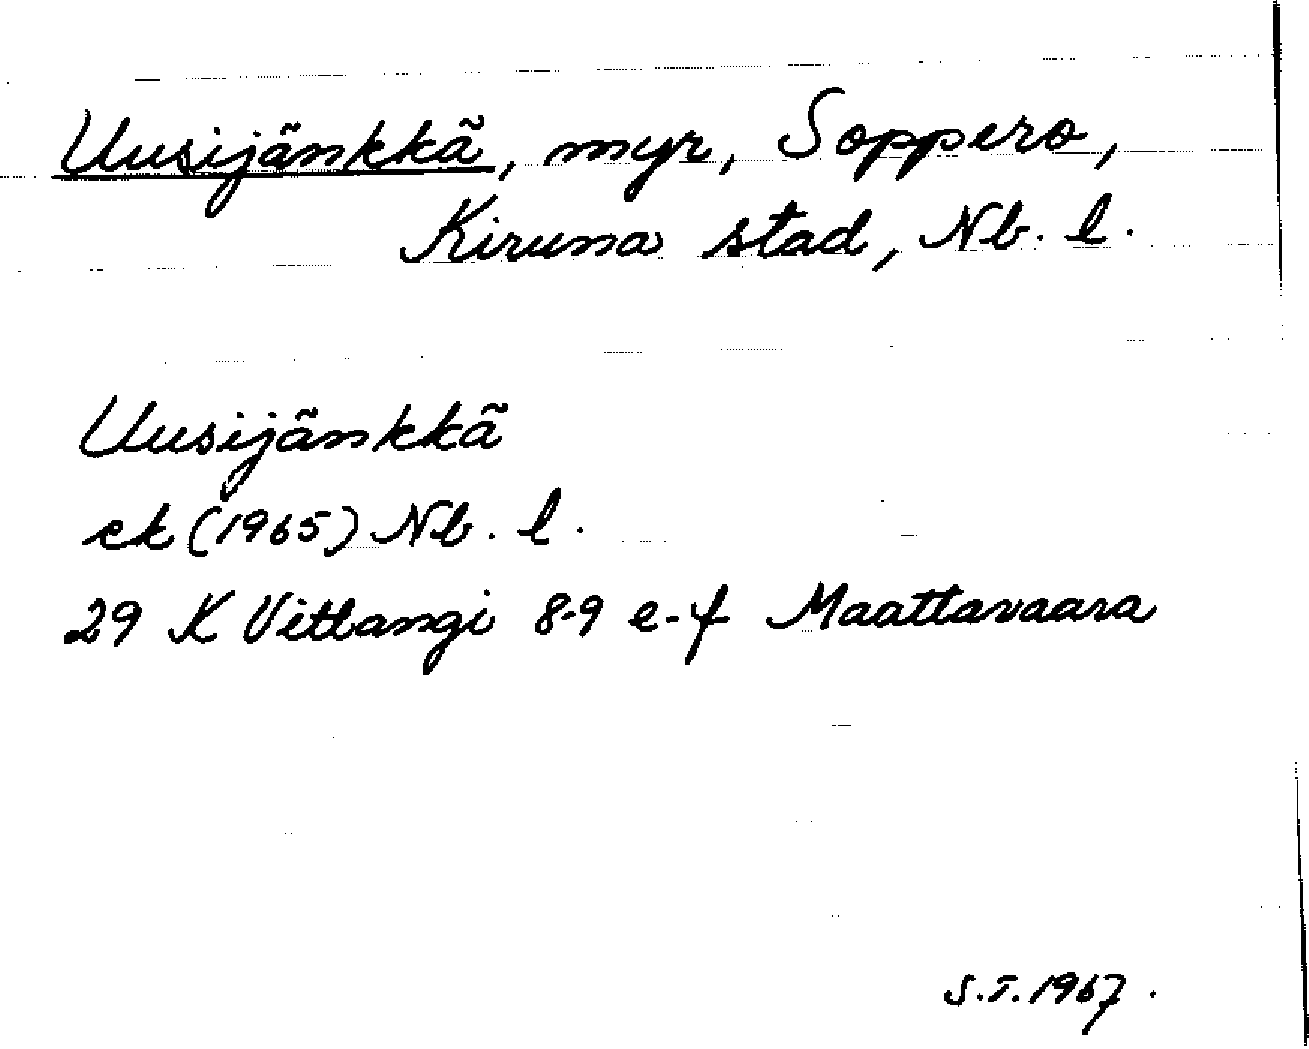 Uusijänkkä, myr, Soppero,
Kiruna stad, Nb. l.
Uusijänkkä
ek (1965) Nb. l.
29 K Vittangi 8-9 e-f Maattavaara
S.T. 1967.